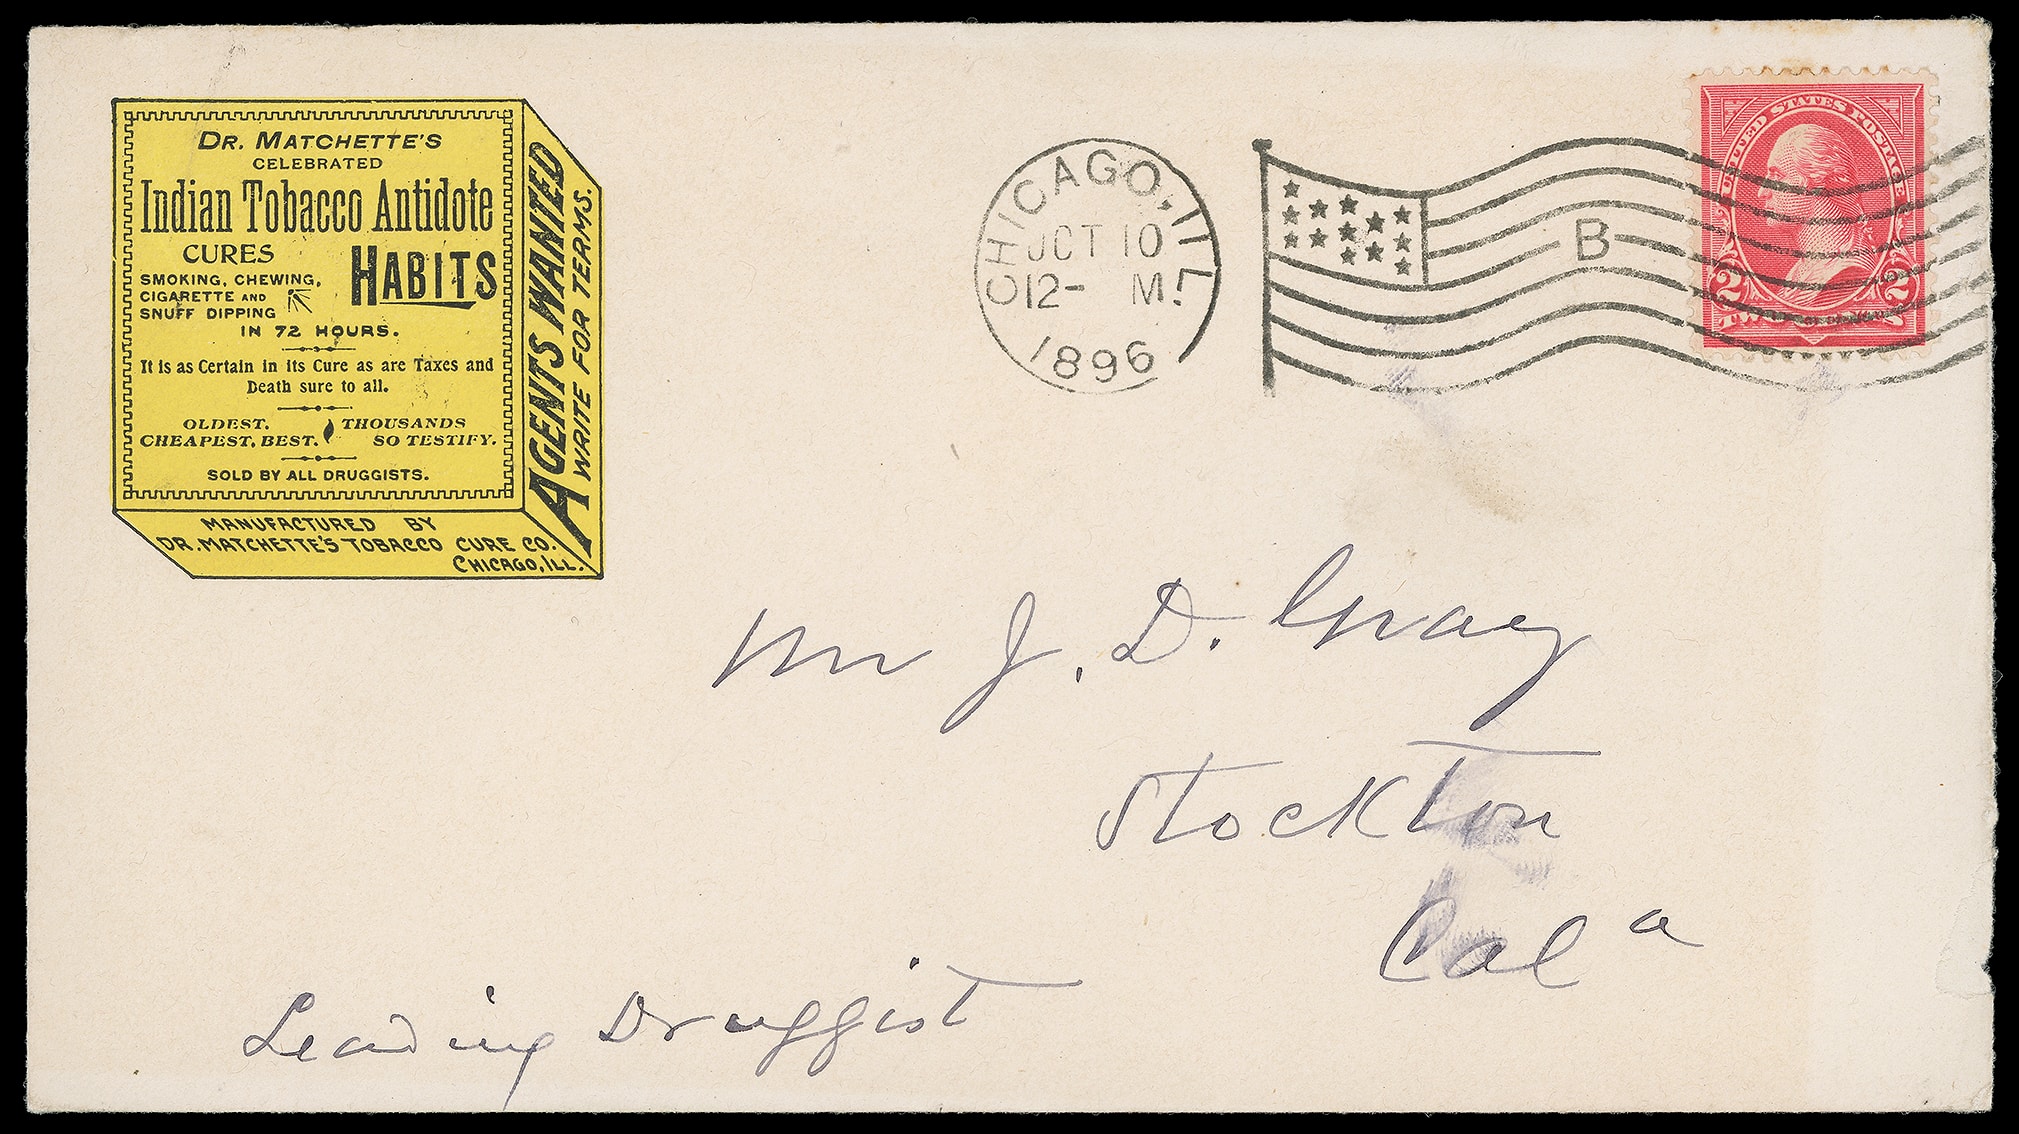 DR. MATCHETTE'S
CELEBRATED
Indian Tobacco Antidote
CURES
HABITS
SMOKING, CHEWING,
CIGARETTE AND
SNUFF DIPPING
IN 72 HOURS.
It is as Certain in its Cure as are Taxes and
Death sure to all.
OLDEST. THOUSANDS
CHEAPEST, BEST. SO TESTIFY.
SOLD BY ALL DRUGGISTS.
AGENTS WANTED
WRITE FOR TERMS.
MANUFACTURED BY
DR. MATCHETTE'S TOBACCO CURE CO.
CHICAGO, ILL.
CHICAGO, ILL.
OCT 10
12- M
1896
B
UNITED STATES POSTAGE
2 2
Mr J. D. Gray
Stockton
Cal a
Leading Druggist